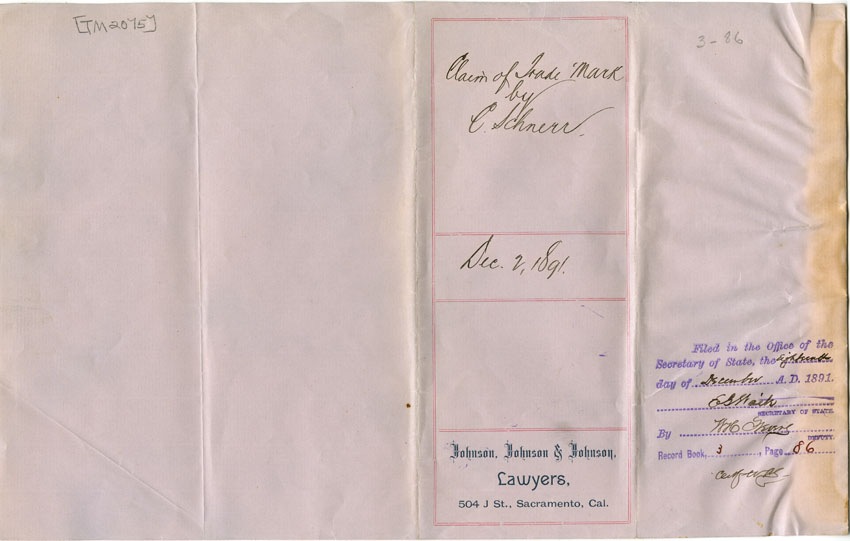 [TM2075]
3-86
Claim of Trade Mark
by
C. Schnerr.
Dec. 2, 1891.
Johnson, Johnson & Johnson,
Lawyers,
504 J St., Sacramento, Cal.
Filed in the Office of the
Secretary of State, the eighteenth
day of December A.D. 1891.
E G Waite
SECRETARY OF STATE.
By
DEPUTY.
Record Book, 3, Page 86